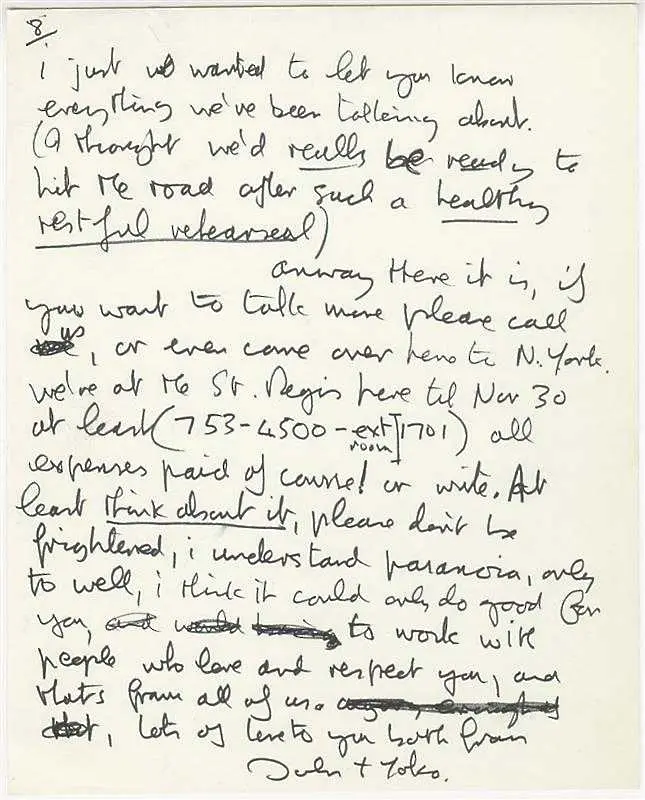 8
i just wanted to let you know
everything we've been talking about.
(I thought we'd really be ready to
hit the road after such a healthy
restful rehearseal)
anway there it is, if
you want to talk more please call
us, or even come over here to N. York.
we're at the St. Regis here til Nov 30
at least (753-4500-ext 1701) all
room
expenses paid of course! or write. At
least think about it, please don't be
frightened, i understand paranoia, only
to well, i think it could only do good for
you, to work with
people who love and respect you, and
thats from all of us.
, lots of love to you both from
John + Yoko.